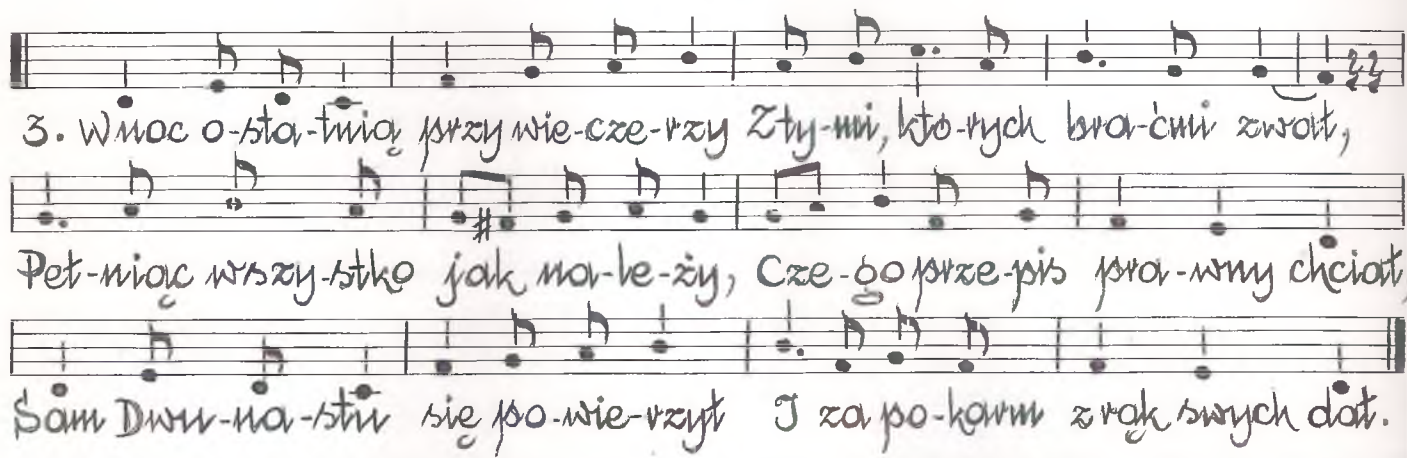 3. W noc o-sta-tnią przy wie-cze-rzy Z ty-mi, któ-rych bra-ćmi zwał,
Peł-niąc wszy-stko jak na-le-ży, Cze-go prze-pis pra-wny chciał,
Sam Dwu-na-stu się po-wie-rzył I za po-karm z rąk swych dał.